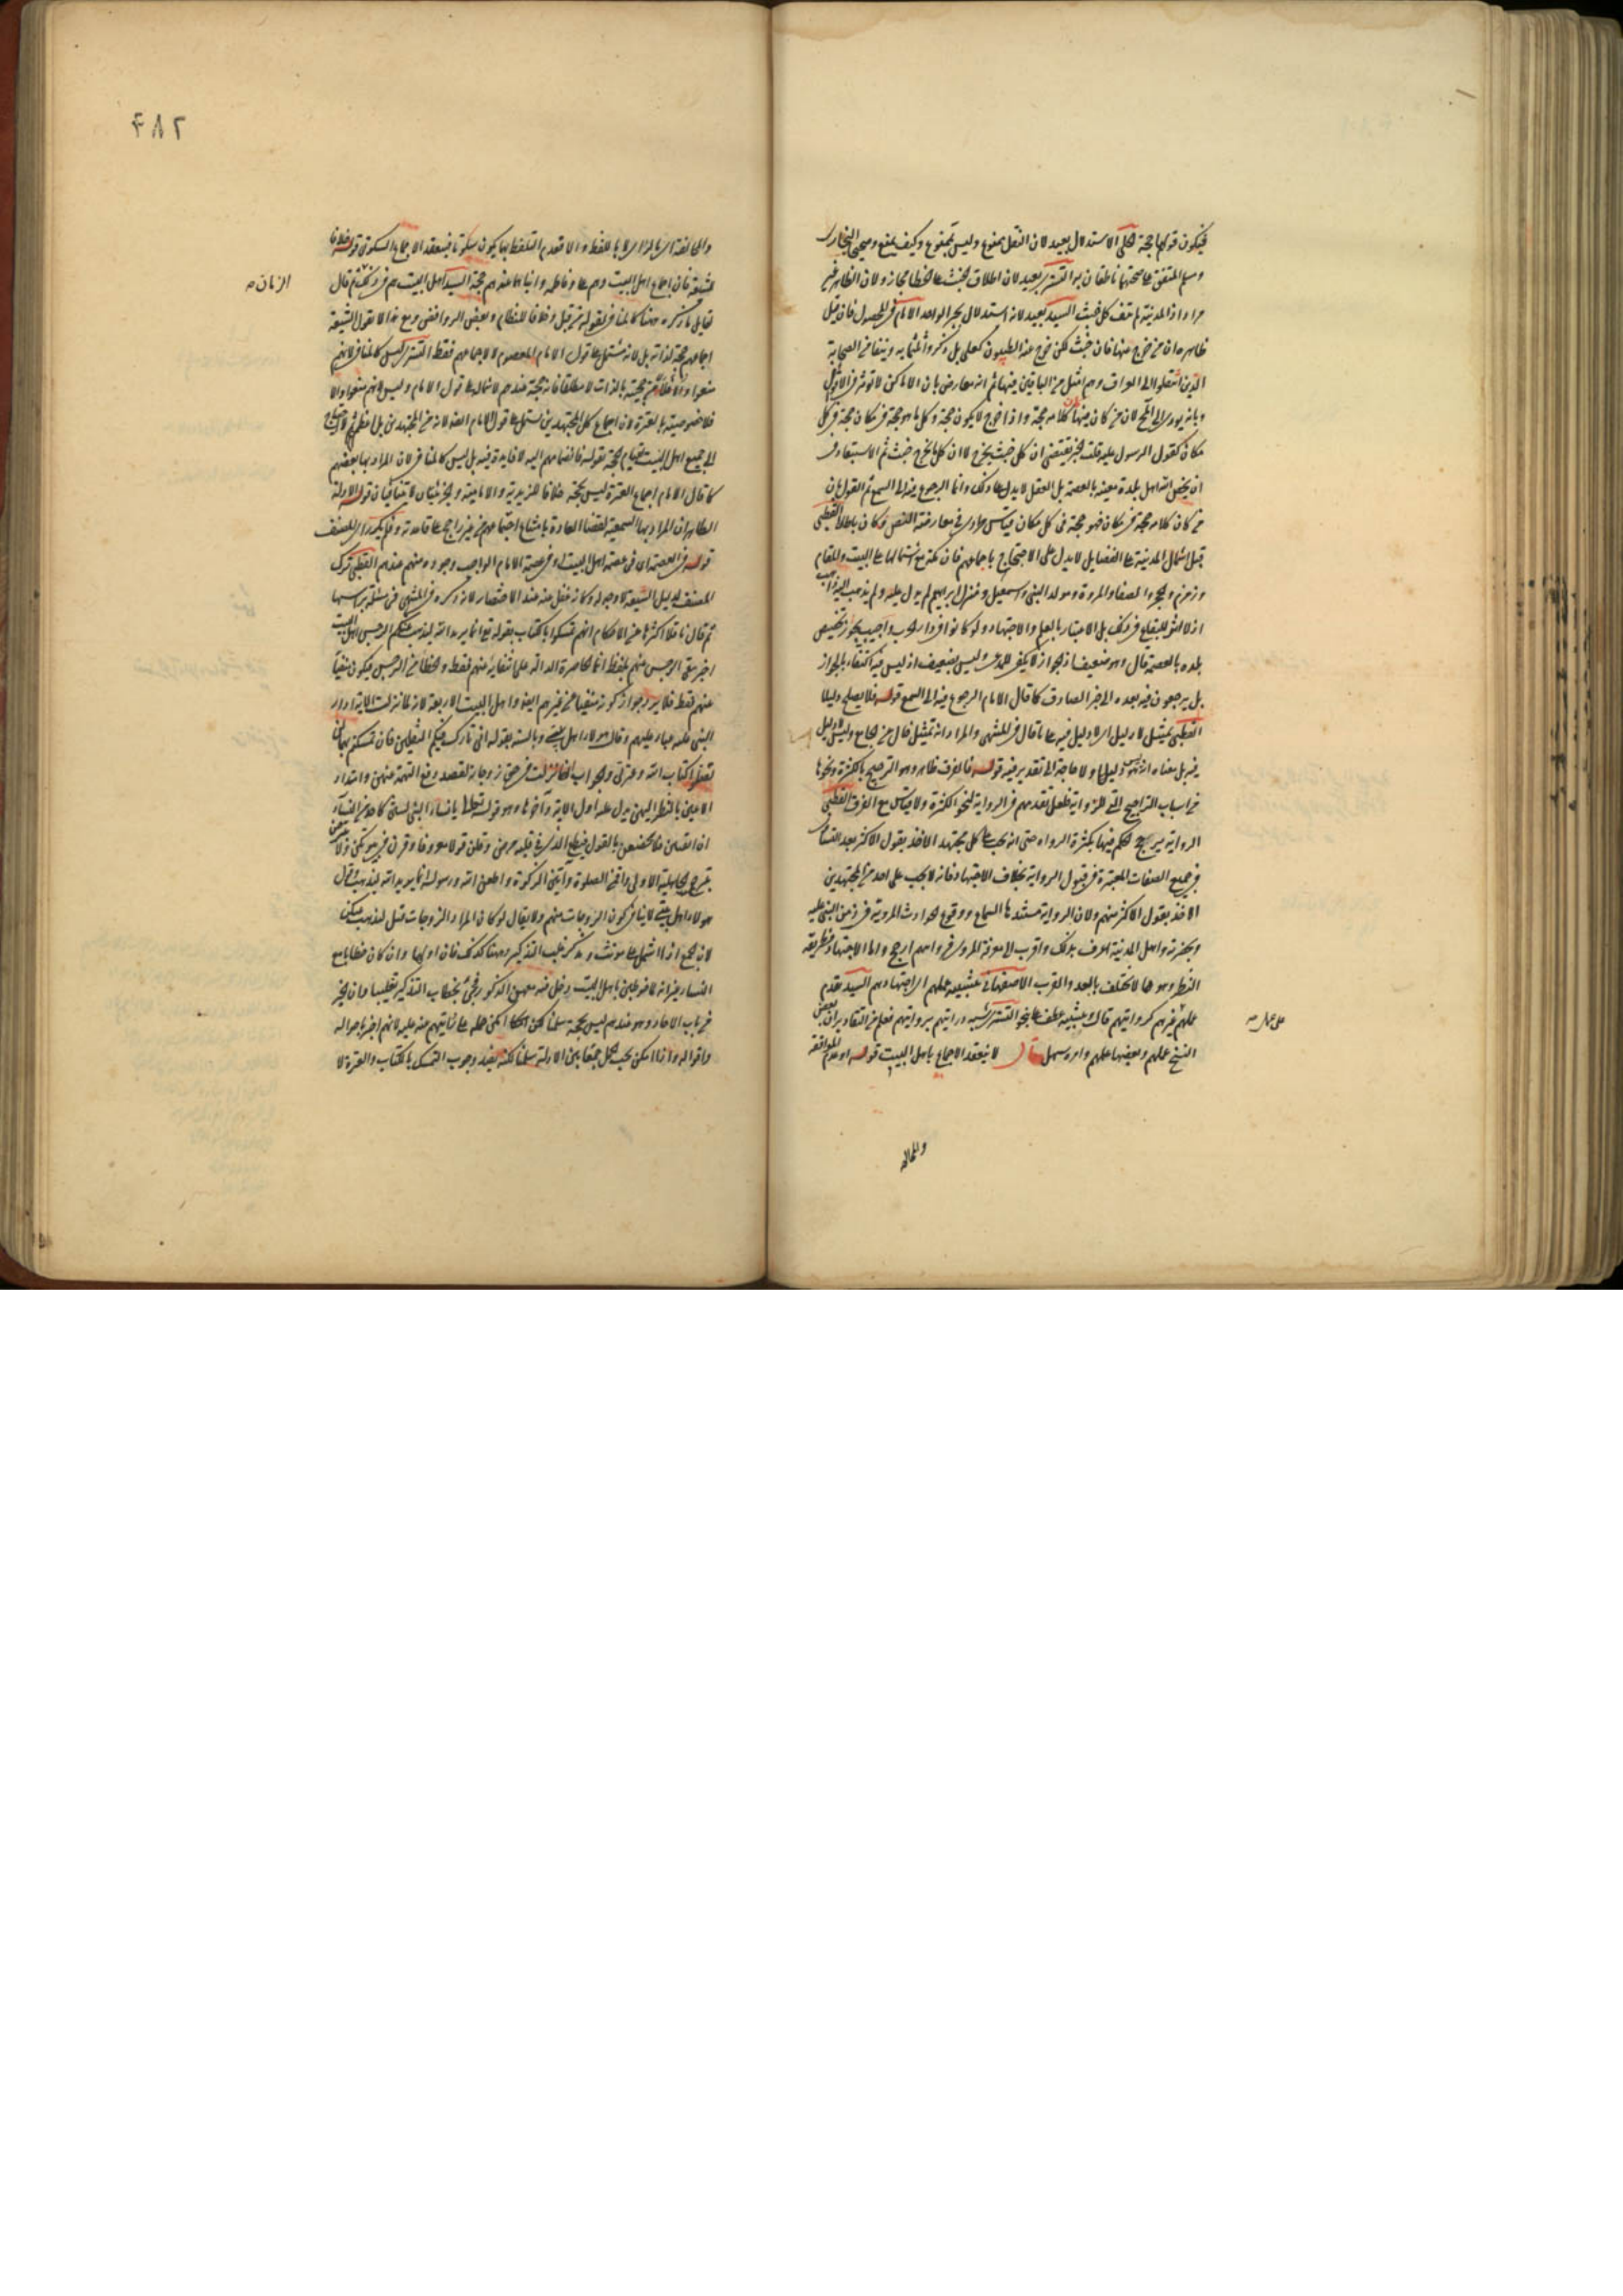 فيكون قولها حجة الحلى الاستدلال بعيد لان النقل ممنوع وليس بممنوع وكيف يمنع وصحيحى البخارى
ومسلم المتفق على صحتهما ناطقان به التسترى بعيد لان اطلاق الخبث على الخطا مجاز ولان الظاهر غير
مراد اذ المدينة لم تنف كل خبث السيد بعيد لانه استدلال بخبر الواحد الامام فى المحصول فان قيل
ظاهره ان من خرج منها فان خبث لكن خرج عنه الطيبون كعلى بل ذكروا ثلثمائة ونيفا من الصحابة
الذين انتقلوا الى العراق وهم امثل من الباقين فيها ثم انه معارض بان الاماكن لا توثر فى
وبانه يودى الى ان من كان فيها كان كلامه حجة واذا خرج لا يكون حجة وكل ما هو حجة فى مكان حجة فى كل
مكان كقول الرسول عليه قلت الخبر يقتضى ان كل خبث يخرج لا ان كل ما يخرج خبث ثم الاستبعاد فى
ان يخص الله اهل بلدة معينة بالعصمة بل العقل لا يدل على ذلك وانما الرجوع فيه الى السمع ثم القول بان
من كان كلامه حجة فى مكان فهو حجة فى كل مكان قياس طردى فى معارضة النص وكان باطلا القطبى
قيل اشتمال المدينة على الفضايل لا يدل على الاحتجاج باجماعهم فان مكة مع اشتمالها على البيت والمقام
وزمزم والحجر والصفا والمروة ومولد النبى واسمعيل ومنزل ابراهيم لم يدل عليه ولم يذهب اليه ذاهب
اذ لا اثر للبقاع فى ذلك بل الاعتبار بالعلم والاجتهاد ولو كانوا فى دار الحرب واجيب بجواز تخصيص
بلده بالعصمة قال وهو ضعيف اذ الجواز لا يكفى للمدعى وليس بضعيف اذ ليس فيه اكتفاء بالجواز
بل يرجعون فيه بعده الى خبر الصادق كما قال الامام الرجوع فيه الى السمع قوله فلا يصلح دليلا
القطبى تمثيل لا دليل اى لا دليل فيه على ما قال فى المنتهى والمراد انه تمثيل خال عن الجامع وليس لا دليل
فيه بل معناه انه ليس دليلا ولا حاجة الى تقدير فيه قوله فالفرق ظاهر وهو الترجيح بالكثرة ونحوها
من اسباب التراجيح التى للرواية فلعل تقدمهم فى الرواية لنحو الكثرة ولا قياس مع الفرق القطبى
الرواية يرجح الحكم فيها بكثرة الرواة حتى انه يجب على كل مجتهد الاخذ بقول الاكثر بعد التساوى
فى جميع الصفات المعتبرة فى قبول الرواية بخلاف الاجتهاد فانه لا يجب على احد من المجتهدين
الاخذ بقول الاكثر منهم ولان الرواية مستندها السماع ووقوع الحوادث المروية فى زمن النبى عليه
وبحضرته واهل المدينة اعرف بذلك واقرب الى معرفة المروى فروايتهم ارجح واما الاجتهاد فطريقه
النظر وهو مما لا يختلف بالبعد والقرب الاصفهانى تشبيه عملهم اى اجتهادهم السيد تقدم
عملهم غيرهم كروايتهم قال وتشبيه عطف على نحو التسترى شبه درايتهم بروايتهم فعلم من التقادير ان بعض
النسخ عملهم وبعضها علمهم وامره سهل قال لا ينعقد الاجماع باهل البيت قوله او عدم الموافقة
على عملهم صح
والمخالفة
٤٨٢
والمخالفة اى بالراى لا باللفظ والا فعدم التلفظ بها يكون سكوتا فينعقد الاجماع السكوتى قوله خلافا
للشيعة فان اجماع اهل البيت وهم على وفاطمة وابناهما عندهم حجة السيد اهل البيت هم فى ذلك ثم قال
الزمان صح
لقايل ما ذكره ههنا كالمنافى لقوله من قبل وخلافا للنظام وبعض الروافض ومع هذا لا يقول الشيعة
اجماعهم حجة لذاته بل لانه مشتمل على قول الامام المعصوم لا لاجماعهم فقط التسترى ليس كالمنافى لانهم
منعوا اولا من حجيته بالذات لا مطلقا فانه حجة عندهم لاشتماله على قول الامام وليس لانهم منعوا والا
فلا خصوصية بالعترة لان اجماع كل المجتهدين يشتمل على قول الامام
الى جميع اهل البيت لقيام الحجة بقوله فانضمامهم اليه لا فايدة فيه بل ليس كالمنافى لان المراد بها بعضهم
كما قال الامام اجماع العترة ليس بحجة خلافا للزيدية والامامية والجزئيتان لا تتنافيان قوله الادلة
الظاهر ان المراد بها السمعية لقضاء العادة بامتناع اجتماعهم من غير راجح على قاعدته ولم يكرر اى المصنف
قوله فى العصمة اى فى عصمة اهل البيت او فى عصمة الامام الواجب وجوده منهم عندهم القطبى ترك
المصنف لدليل الشيعة لا وجه له وكانه غفل عنه عند الاختصار لانه ذكره فى المنتهى فى مسئلة براسها
ثم قال ناقلا اكثرها من الاحكام انهم تمسكوا بالكتاب بقوله تع انما يريد الله ليذهب عنكم الرجس اهل البيت
اخبر بنفى الرجس عنهم بلفظ انما الحاصرة الدالة على انتفائه عنهم فقط والخطا من الرجس فيكون منفيا
عنهم فقط فلا يرد جواز كونه منفيا عن غيرهم ايضا واهل البيت الاربعة لانه لما نزلت الاية ادار
النبى عليه عباء عليهم وقال هولاء اهل بيتى وبالسنة بقوله انى تارك فيكم الثقلين فان تمسكتم بهما لن
تضلوا كتاب الله وعترتى والجواب انها نزلت فى حق زوجاته لقصد دفع التهمة عنهن وامتداد
الاعين بالنظر اليهن يدل عليه اول الاية وآخرها وهو قوله تعالى يا نساء النبى لستن كاحد من النساء
ان اتقيتن فلا تخضعن بالقول فيطمع الذى فى قلبه مرض وقلن قولا معروفا وقرن فى بيوتكن ولا تبرجن
تبرج الجاهلية الاولى واقمن الصلوة وآتين الزكوة واطعن الله ورسوله انما يريد الله ليذهب وقال
هولاء اهل بيتى لا ينافى كون الزوجات منهم ولا يقال لو كان المراد الزوجات قيل ليذهب عنكن
لان الجمع اذا اشتمل على مونث ومذكر غلب التذكير وههنا كذلك فان اولها وان كان خطابا مع
النساء غير انه لما خوطبن باهل البيت دخل فيه معهن الذكور فجئ بخطاب التذكير تغليبا وان الخبر
من باب الاحاد وهو عندهم ليس بحجة سلمنا لكن امكن حمله على روايتهم عنه عليه لانهم اخبر باحواله
واقواله واذا امكن يجب الحمل جمعا بين الادلة سلمنا لكنه يفيد وجوب التمسك بالكتاب والعترة لا